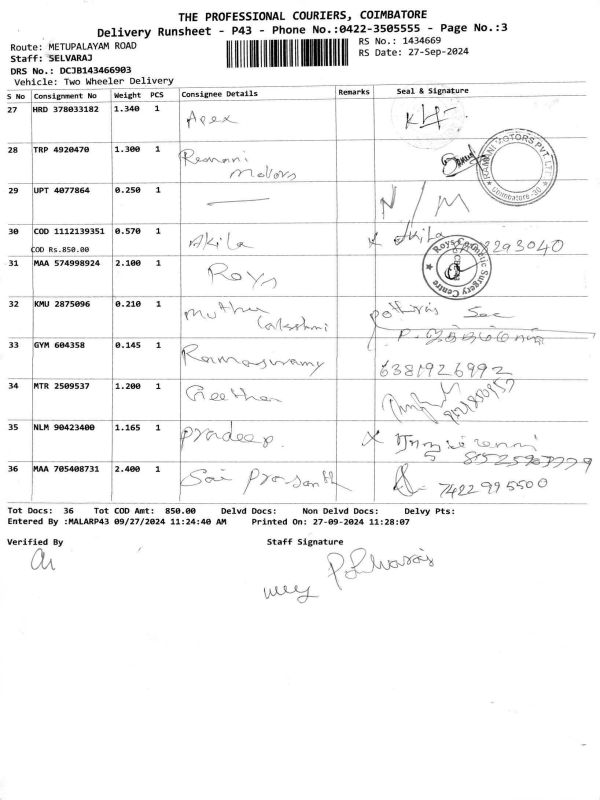 THE PROFESSIONAL COURIERS, COIMBATORE
Delivery Runsheet - P43 - Phone No.:0422-3505555 - Page No.:3
Route: METUPALAYAM ROAD
RS No.: 1434669
Staff: SELVARAJ
RS Date: 27-Sep-2024
DRS No.: DCJB143466903
Vehicle: Two Wheeler Delivery
S No Consignment No Weight PCS Consignee Details Remarks Seal & Signature
27 HRD 378033182 1.340 1 Apex
28 TRP 4920470 1.300 1 Ramani Motors
RAMANI MOTORS PVT. LTD. Coimbatore
29 UPT 4077864 0.250 1 — N/M
30 COD 1112139351 0.570 1 Akila Akila
COD Rs.850.00
31 MAA 574998924 2.100 1 Roys
Roys Cosmetic Surgery Centre
32 KMU 2875096 0.210 1 Muthu Lakshmi
33 GYM 604358 0.145 1 Ramaswamy 6381926992
34 MTR 2509537 1.200 1 Geetha
35 NLM 90423400 1.165 1 Pradeep.
36 MAA 705408731 2.400 1 Sai Prasanth 7422995500
Tot Docs: 36 Tot COD Amt: 850.00 Delvd Docs: Non Delvd Docs: Delvy Pts:
Entered By :MALARP43 09/27/2024 11:24:40 AM Printed On: 27-09-2024 11:28:07
Verified By Staff Signature